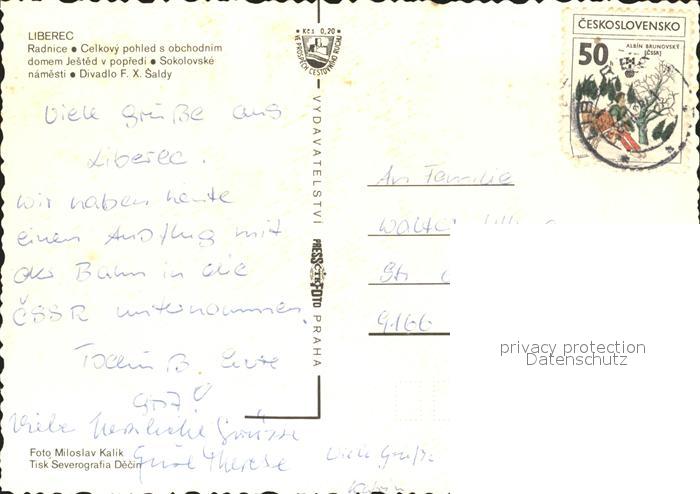 LIBEREC
Radnice ● Celkový pohled s obchodním
domem Ještěd v popředí ● Sokolovské
náměstí ● Divadlo F. X. Šaldy
Kčs 0,20
VE PROSPĚCH CESTOVNÍHO RUCHU
ČESKOSLOVENSKO
50
ALBÍN BRUNOVSKÝ
(ČSSR)
Viele Grüße aus
Liberec.
Wir haben heute
einen Ausflug mit
der Bahn in die
ČSSR unternommen.
B. Eure
Viele herzliche Grüsse
Eure Therese
Viele Grüße
VYDAVATELSTVÍ
PRESSFOTO
ČTK
PRAHA
An Familie
Walter
Str
9166
privacy protection
Datenschutz
Foto Miloslav Kalik
Tisk Severografia Děčín